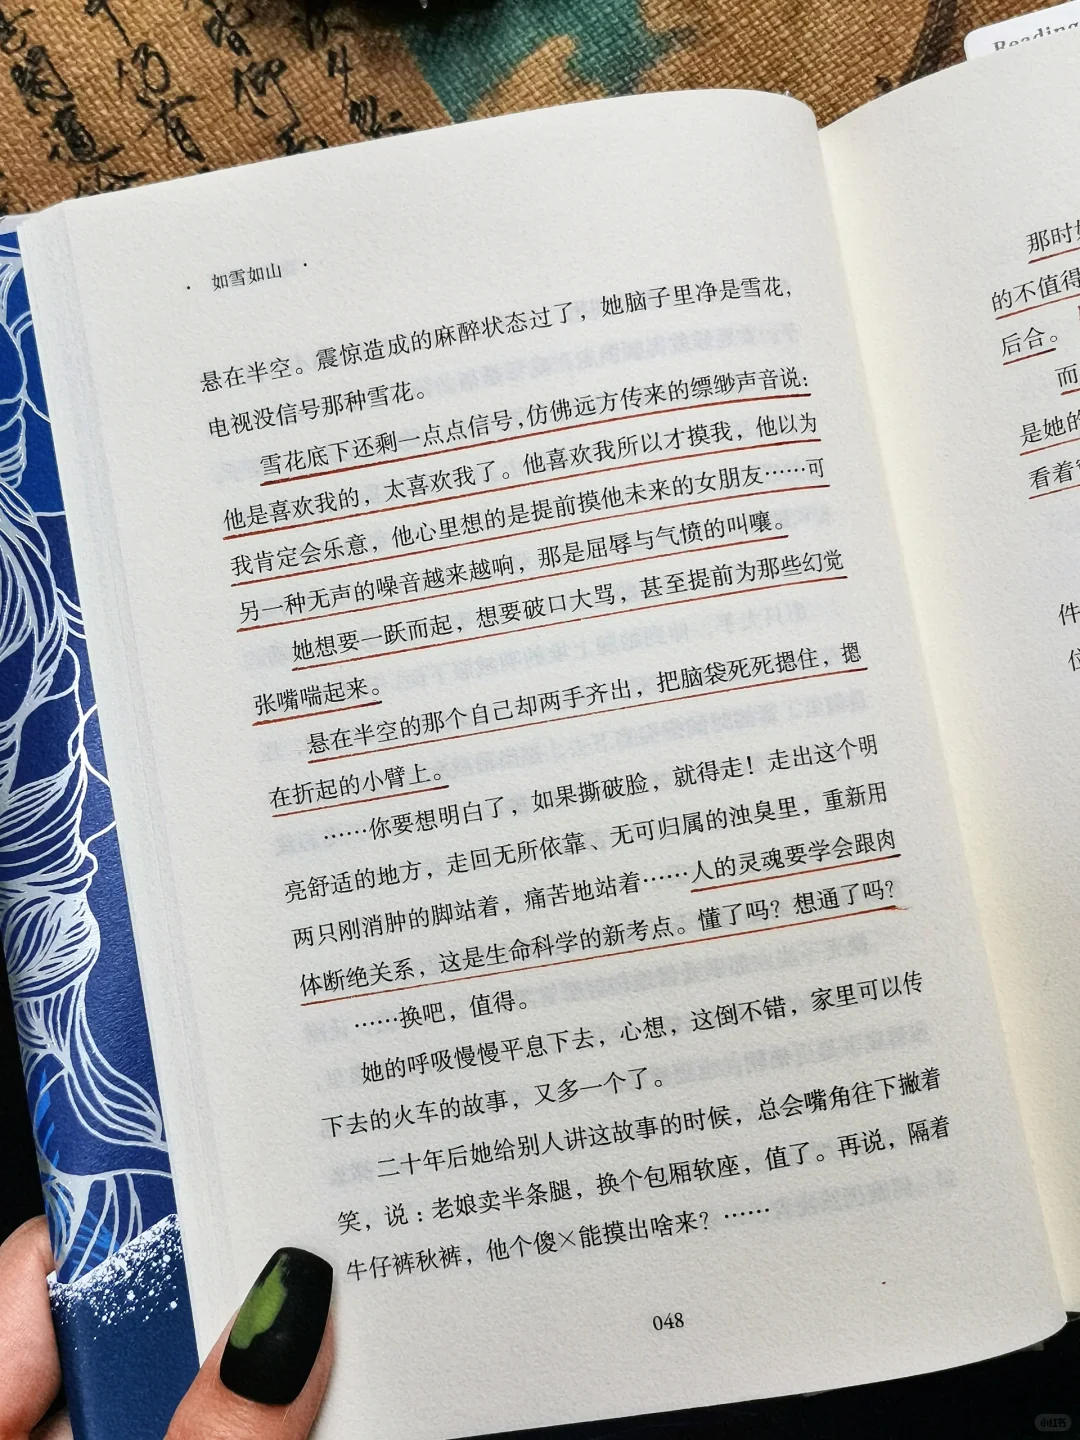 Reading
· 如雪如山 ·
悬在半空。震惊造成的麻醉状态过了，她脑子里净是雪花，
电视没信号那种雪花。
雪花底下还剩一点点信号，仿佛远方传来的缥缈声音说：
他是喜欢我的，太喜欢我了。他喜欢我所以才摸我，他以为
我肯定会乐意，他心里想的是提前摸他未来的女朋友……可
另一种无声的噪音越来越响，那是屈辱与气愤的叫嚷。
她想要一跃而起，想要破口大骂，甚至提前为那些幻觉
张嘴喘起来。
悬在半空的那个自己却两手齐出，把脑袋死死摁住，摁
在折起的小臂上。
……你要想明白了，如果撕破脸，就得走！走出这个明
亮舒适的地方，走回无所依靠、无可归属的浊臭里，重新用
两只刚消肿的脚站着，痛苦地站着……人的灵魂要学会跟肉
体断绝关系，这是生命科学的新考点。懂了吗？想通了吗？
……换吧，值得。
她的呼吸慢慢平息下去，心想，这倒不错，家里可以传
下去的火车的故事，又多一个了。
二十年后她给别人讲这故事的时候，总会嘴角往下撇着
笑，说：老娘卖半条腿，换个包厢软座，值了。再说，隔着
牛仔裤秋裤，他个傻×能摸出啥来？……
048
那时
的不值得
后合。
而
是她的
看着
件
小红书